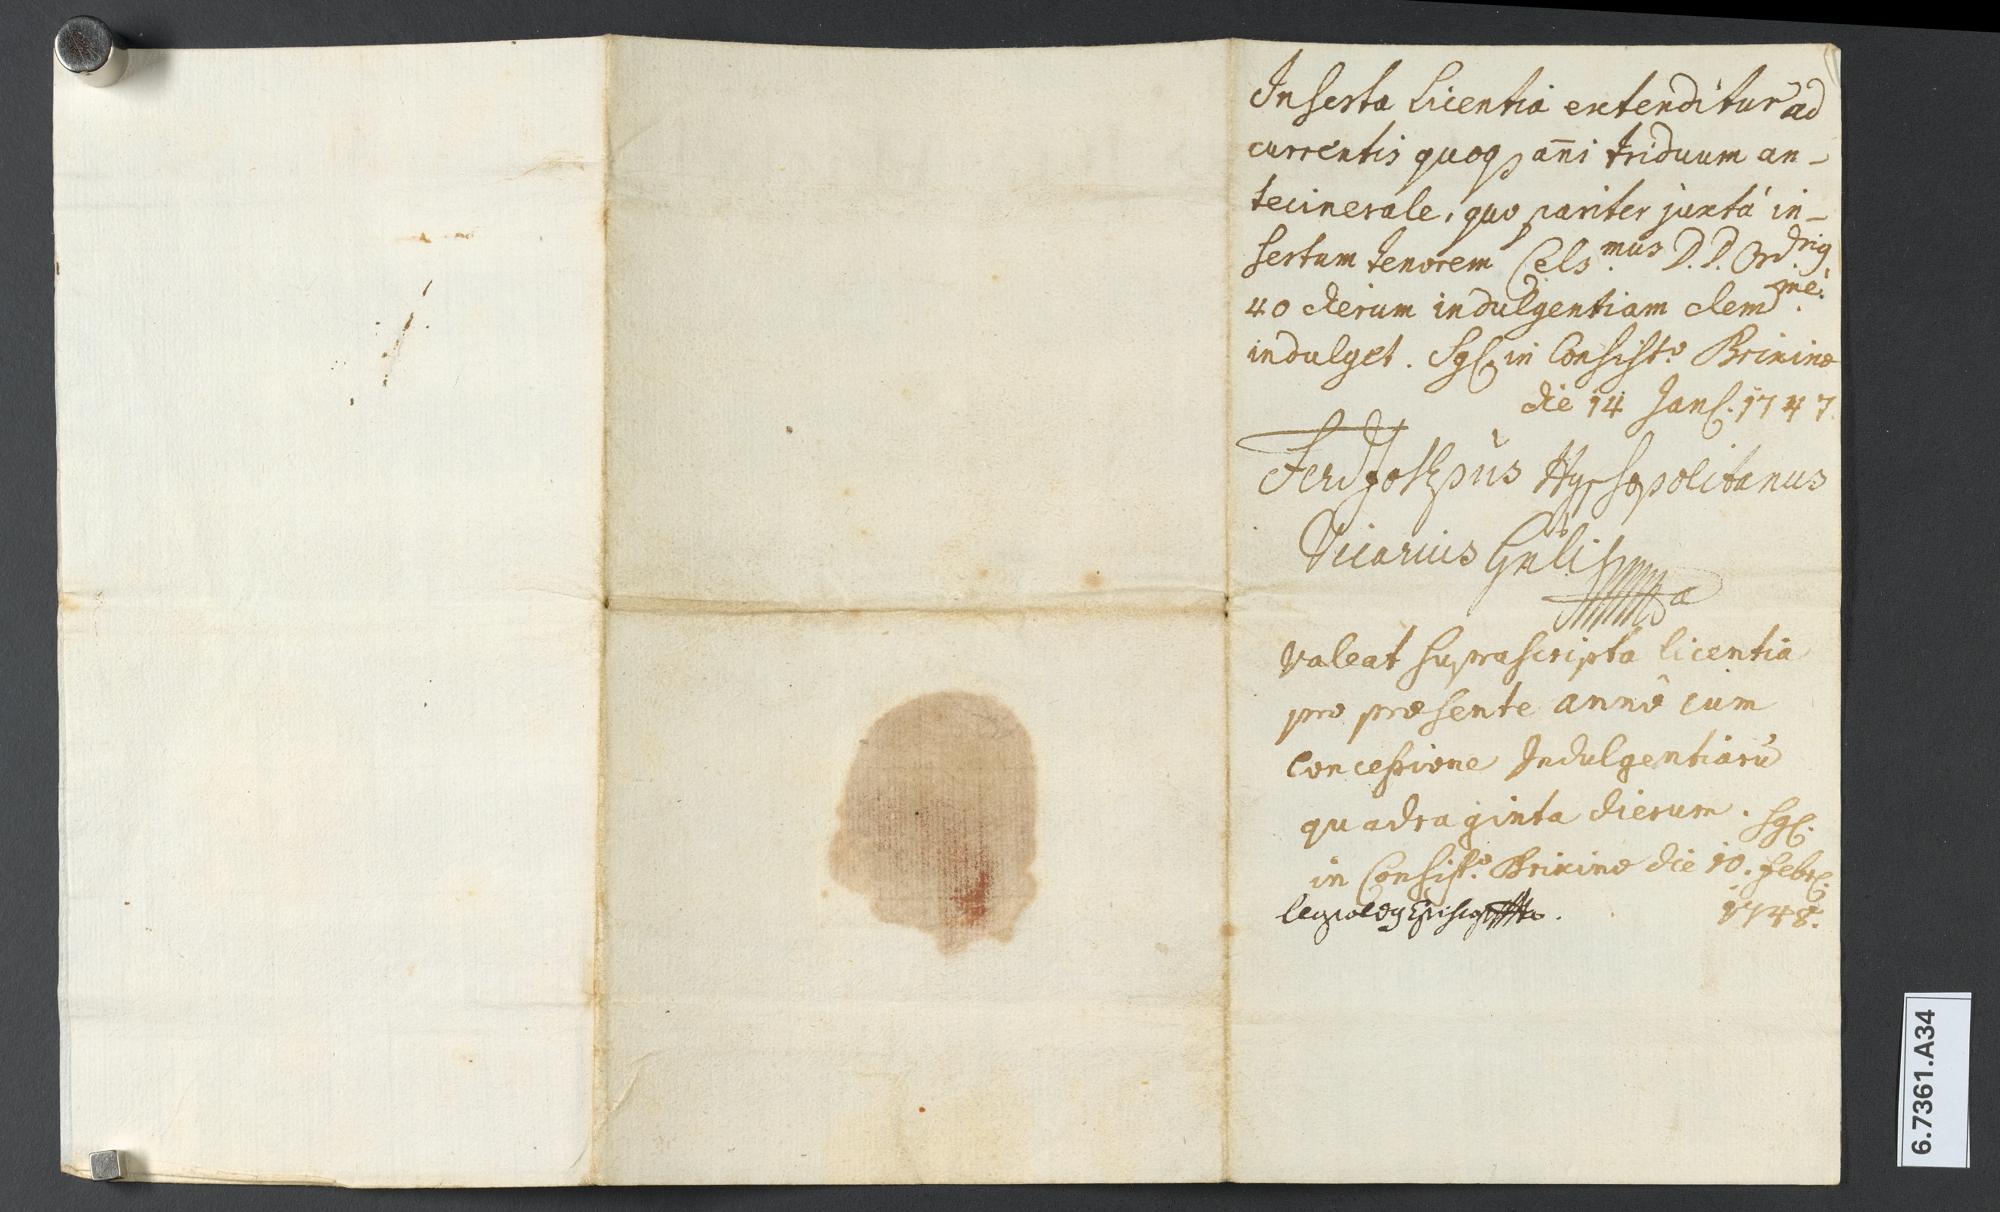 Inserta Licentia extenditur ad
currentis quoq; añi triduum an-
tecinerale, quo pariter juxtà in-
sertum tenorem Cels.mus D. D. Ord.rig
40 dierum indulgentiam clem.mè
indulget. Sig. in Consist.o Brixino
die 14 Jan. 1747.
Ferd Josephus Hyssopolitanus
Vicarius Gnlis
Valeat suprascripta licentia
pro præsente annô cum
concessione Indulgentiarū
quadraginta dierum. Sig.
in Consist.o Brixino die 10. Febr.
Leopoldg Episcop 1748.
6.7361.A34